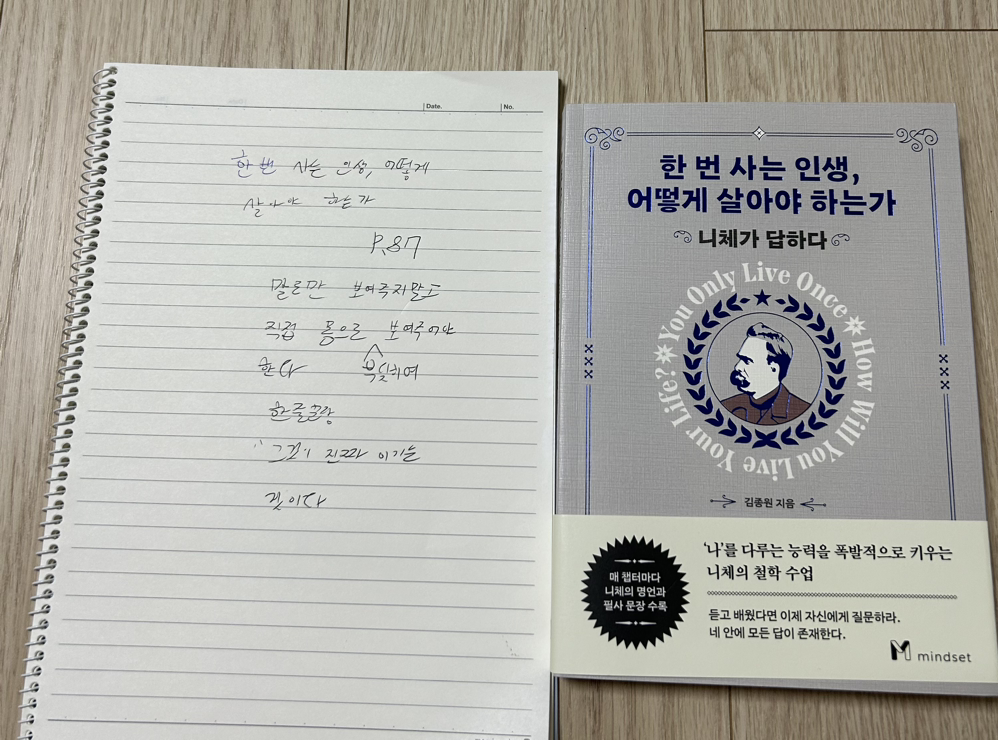 Date.
No.
한 번 사는 인생, 어떻게
살아야 하는가
P.87
말로만 보여주지말고
직접 몸으로 보여주어야
한다
부딪혀
한줄
"그것이 진짜 이기는
것이다
한 번 사는 인생,
어떻게 살아야 하는가
니체가 답하다
You Only Live Once
How Will You Live Your Life?
김종원 지음
'나'를 다루는 능력을 폭발적으로 키우는
니체의 철학 수업
매 챕터마다
니체의 명언과
필사 문장 수록
듣고 배웠다면 이제 자신에게 질문하라.
네 안에 모든 답이 존재한다.
mindset